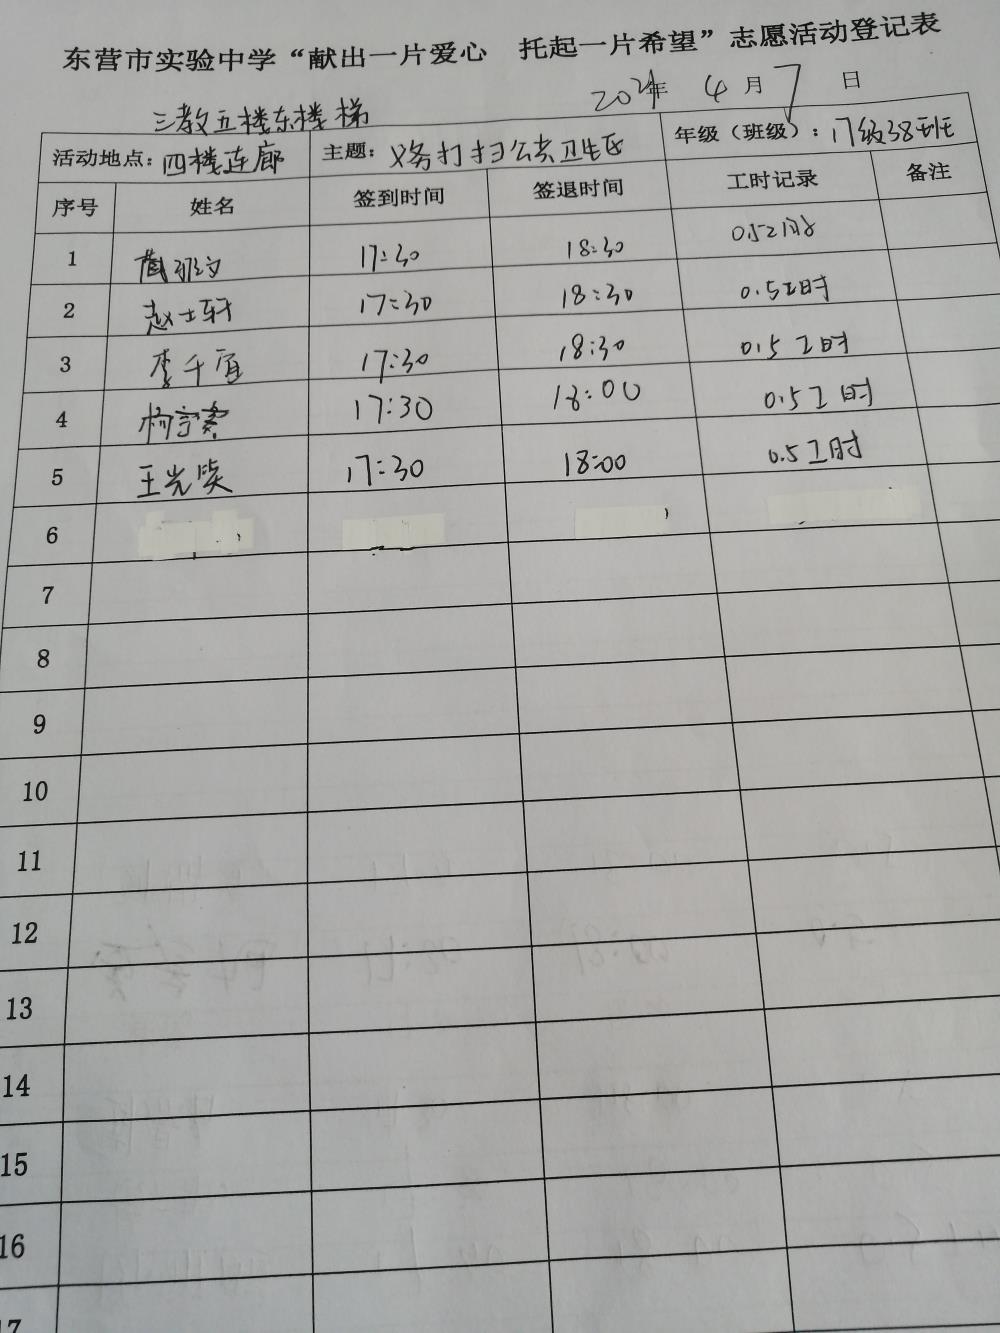 东营市实验中学“献出一片爱心 托起一片希望”志愿活动登记表
2021年 4 月 7 日
三教五楼东楼梯
活动地点：四楼连廊 主题：义务打扫公共卫生区 年级（班级）：17级38班
序号 姓名 签到时间 签退时间 工时记录 备注
1 17:30 18:30 0.5工时
2 赵士轩 17:30 18:30 0.5工时
3 李千宜 17:30 18:30 0.5工时
4 17:30 18:00 0.5工时
5 王光笑 17:30 18:00 0.5工时
6
7
8
9
10
11
12
13
14
15
16
17